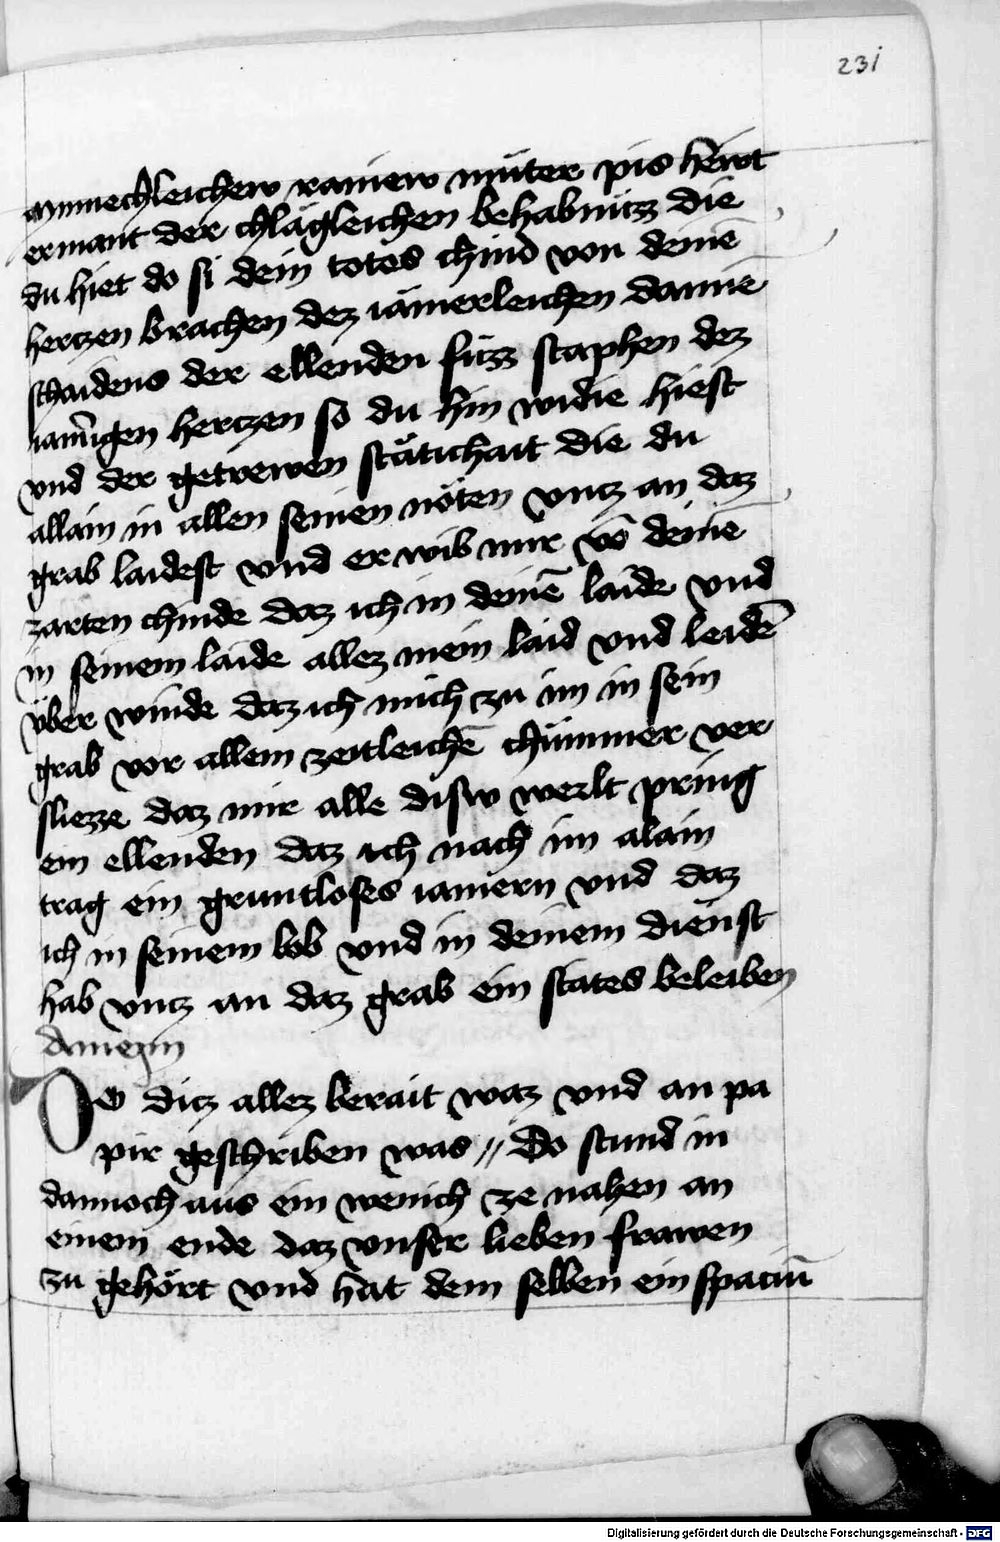 231
mynnechleichew rainew muter pis hewt
ermant der chlägleichen behabnüzz die
du hiet do si dein totes chind von deinē
hertzen brachen dez iämerleichen dannē
schaidens der ellenden füzz staphen dez
iamrigen hertzen so du hin widie hiest
vnd der getrewen stätichait die du
allain in allen seinen nöten vntz an daz
grab laidest vnd er wib mir vō deinē
zarten chinde daz ich in deinē laide vnd
in seinem laide allez mein laid vnd leidē
über winde daz ich mich zu im in sein
grab vor allem zeitleichē chümmer ver
sliezze daz mir alle disw werlt pring
ein ellenden daz ich nach im alain
trag ein gruntloses iamern vnd daz
ich in seinem lob vnd in deinem dienst
hab vntz an daz grab ein stätes beleiben
Amenn
Do ditz allez berait waz vnd an pa
pir geschriben was // Do stund in
dannoch aus ein wenich ze nahen an
einem ende daz vnser lieben frawen
zu gehört vnd hat dem selben ein spaciū
Digitalisierung gefördert durch die Deutsche Forschungsgemeinschaft - DFG